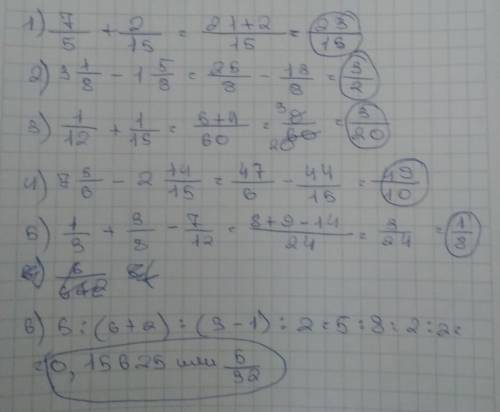 1) 7/5 + 2/15 = 21+2/15 = 23/15
2) 3 1/8 - 1 5/8 = 25/8 - 13/8 = 3/2
3) 1/12 + 1/15 = 5+4/60 = 9/60 3 20 = 3/20
4) 7 5/6 - 2 14/15 = 47/6 - 44/15 = 49/10
5) 1/3 + 3/8 - 7/12 = 8+9-14/24 = 3/24 = 1/8
6) 5:(6+2):(3-1):2=5:8:2:2=
=0,15625 или 5/32